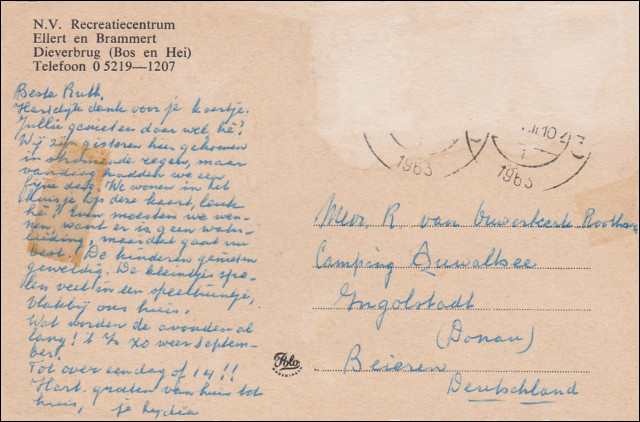 N.V. Recreatiecentrum
Ellert en Brammert
Dieverbrug (Bos en Hei)
Telefoon 0 5219—1207
Beste Ruth,
Hartelijk dank voor je kaartje.
Jullie genieten daar wel, hè?
Wij zijn gisteren hier gekomen
in stromende regen, maar
vandaag hadden we een
fijne dag. We wonen in het
huisje op deze kaart, leuk
hè? Even moesten we wen-
nen, want er is geen water-
leiding, maar dat gaat nu
best. De kinderen genieten
geweldig. De kleintjes spe-
len veel in een speeltuintje,
vlakbij ons huis.
Wat worden de avonden al
lang! 't Is zo weer septem-
ber.
Tot over een dag of 14!!
Hart. groeten van huis tot
huis, je
10
1963
1963
Mevr. R. van Ouwerkerk
Camping Auwaltsee
Ingolstadt
(Donau)
Beieren
Deutschland